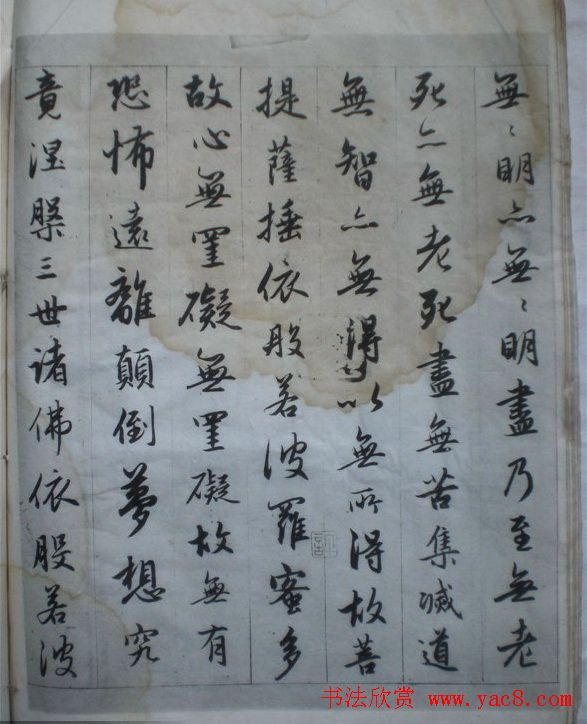 無〻明亦無〻明盡乃至無老
死亦無老死盡無苦集滅道
無智亦無得以無所得故菩
提薩埵依般若波羅蜜多
故心無罣礙無罣礙故無有
恐怖遠離顛倒夢想究
竟涅槃三世諸佛依般若波
书法欣赏 www.yac8.com